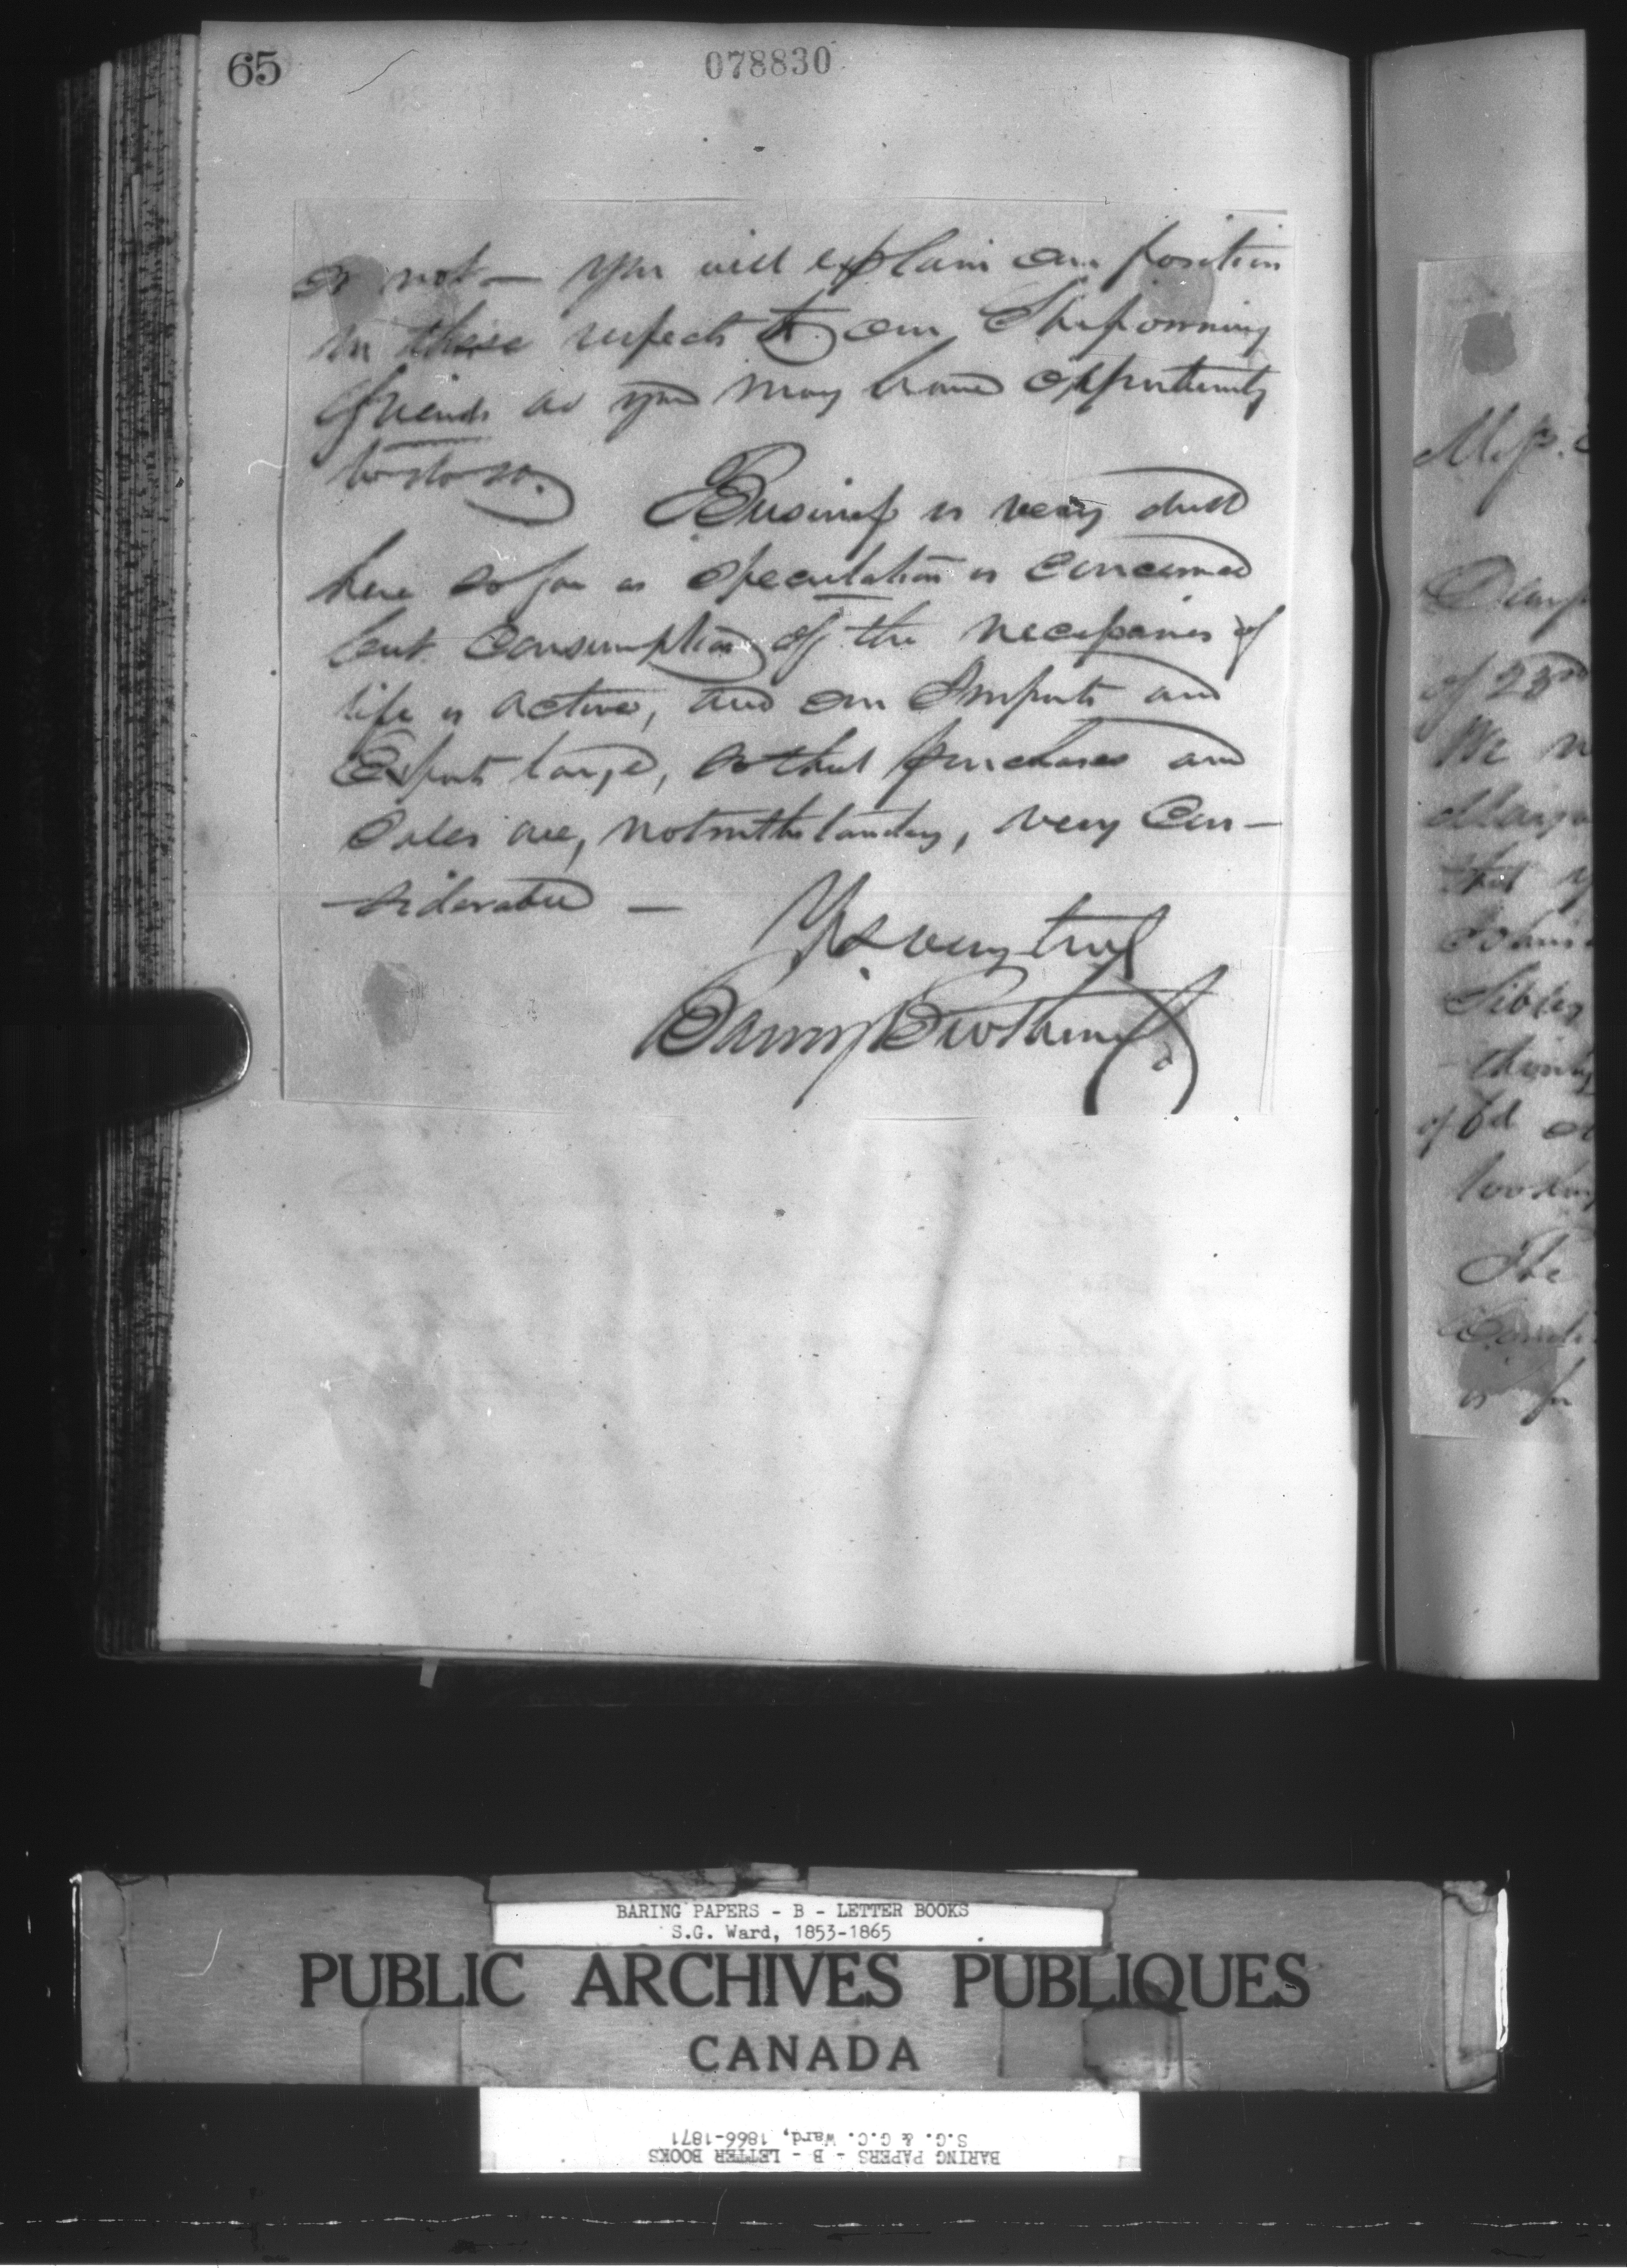 65
078830
or not — you will explain our position
in these respects to our Shipowning
friends as you may have opportunity
to do so.
Business is very dull
here so far as speculation is concerned
but Consumption of the necessaries of
life is active, and our Imports and
Exports large, so that purchases and
Sales are, notwithstanding, very Con-
-siderable —
Yrs very truly
Baring Brothers
of 23rd
We
that
Sibley
of 6d
The
is for
BARING PAPERS - B - LETTER BOOKS
S.G. Ward, 1853-1865
PUBLIC ARCHIVES PUBLIQUES
CANADA
BARING PAPERS - B - LETTER BOOKS
S.G. & G.C. Ward, 1866-1871